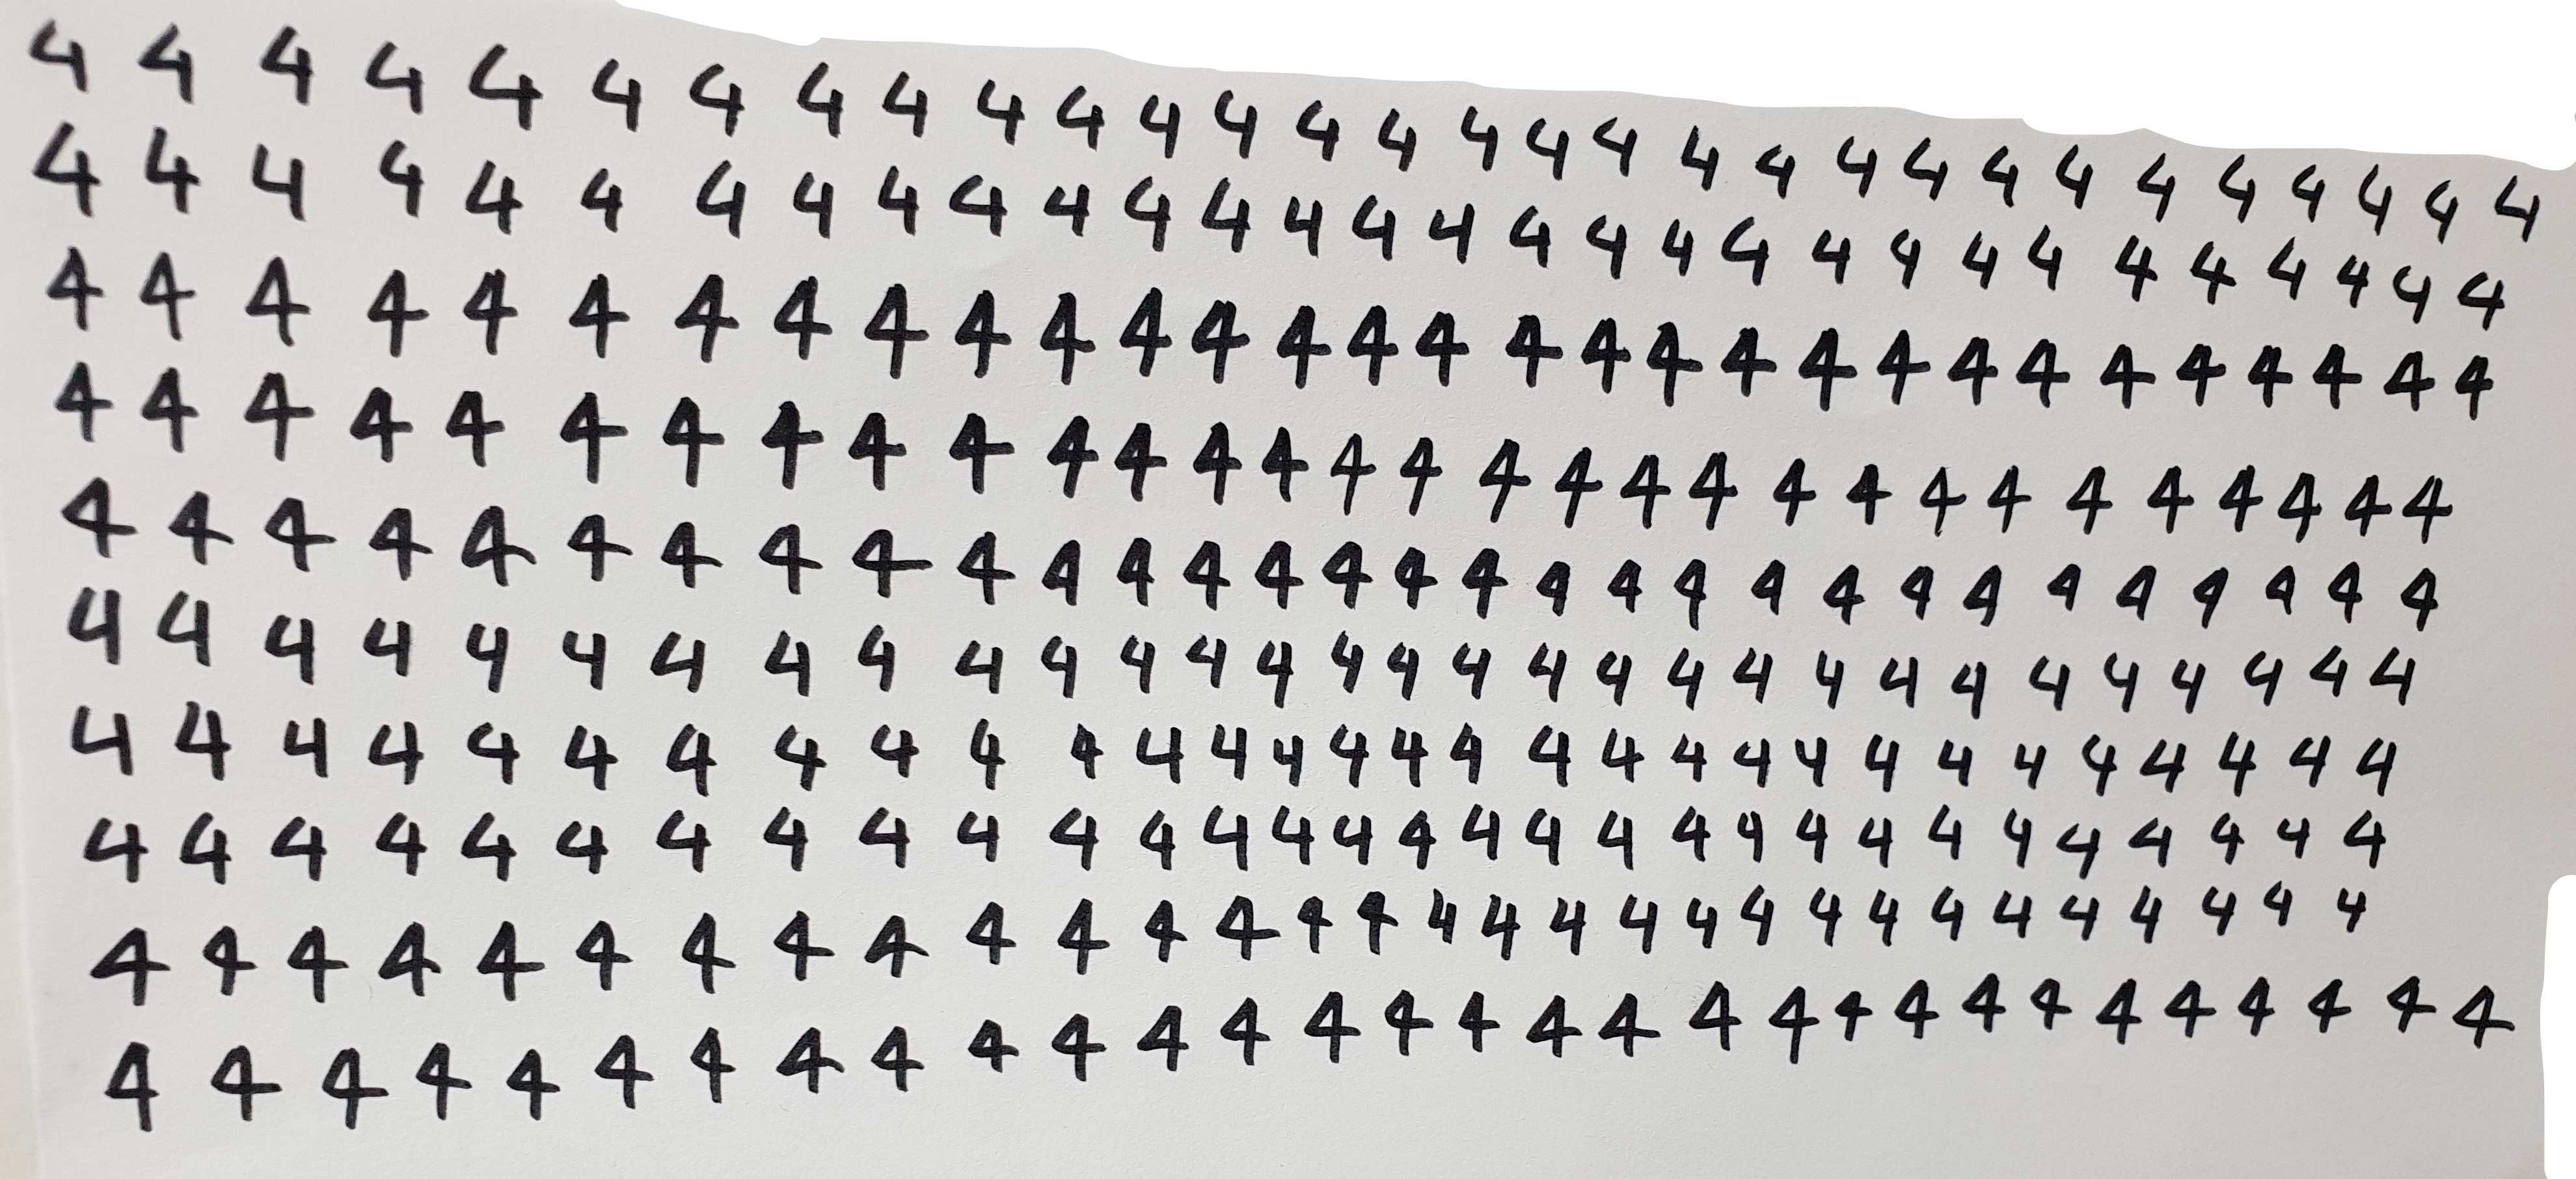 4 4 4 4 4 4 4 4 4 4 4 4 4 4 4 4 4 4 4 4 4 4 4 4 4 4 4 4 4 4
4 4 4 4 4 4 4 4 4 4 4 4 4 4 4 4 4 4 4 4 4 4 4 4 4 4 4 4 4 4
4 4 4 4 4 4 4 4 4 4 4 4 4 4 4 4 4 4 4 4 4 4 4 4 4 4 4 4 4 4
4 4 4 4 4 4 4 4 4 4 4 4 4 4 4 4 4 4 4 4 4 4 4 4 4 4 4 4 4 4
4 4 4 4 4 4 4 4 4 4 4 4 4 4 4 4 4 4 4 4 4 4 4 4 4 4 4 4 4 4
4 4 4 4 4 4 4 4 4 4 4 4 4 4 4 4 4 4 4 4 4 4 4 4 4 4 4 4 4 4
4 4 4 4 4 4 4 4 4 4 4 4 4 4 4 4 4 4 4 4 4 4 4 4 4 4 4 4 4 4
4 4 4 4 4 4 4 4 4 4 4 4 4 4 4 4 4 4 4 4 4 4 4 4 4 4 4 4 4 4
4 4 4 4 4 4 4 4 4 4 4 4 4 4 4 4 4 4 4 4 4 4 4 4 4 4 4 4 4 4
4 4 4 4 4 4 4 4 4 4 4 4 4 4 4 4 4 4 4 4 4 4 4 4 4 4 4 4 4 4